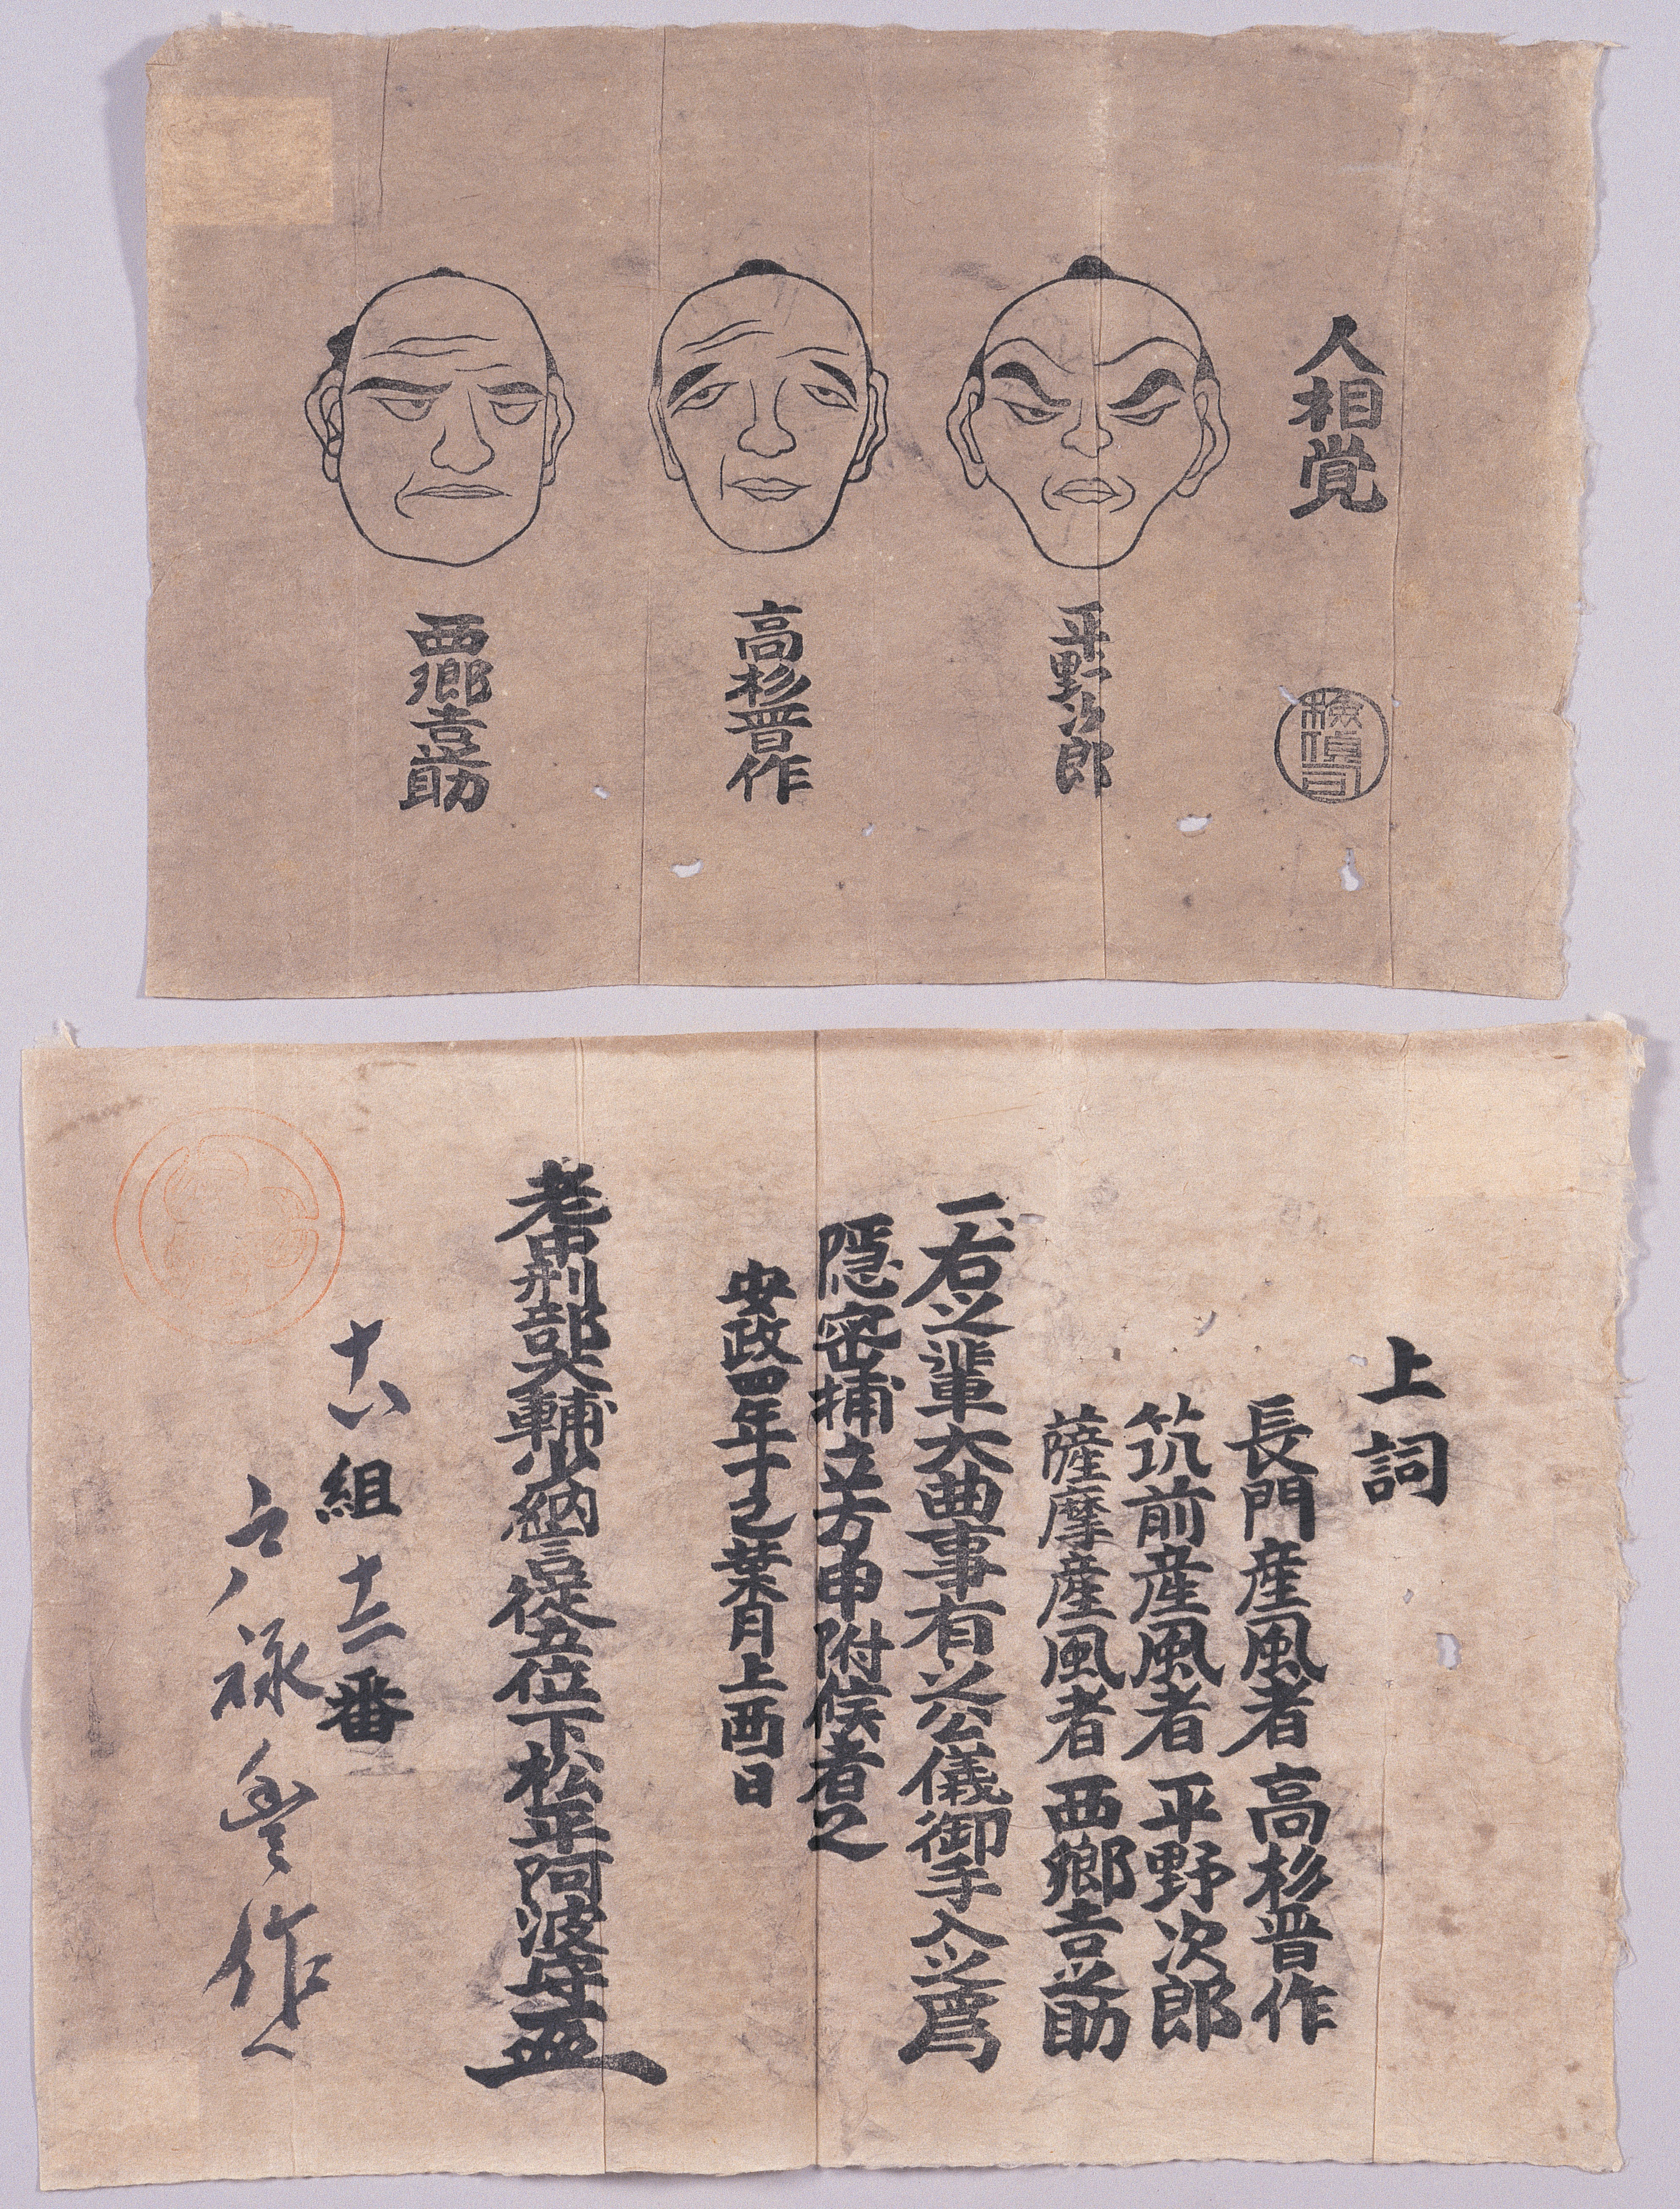 人相覚
検偵司
平野次郎
高杉晋作
西郷吉之助
上詞
長門産風者 高杉晋作
筑前産風者 平野次郎
薩摩産風者 西郷吉之助
一、右之輩大曲事有之公儀御手入之為
隠密捕立方申附候者之
安政四年丁己葉月上酉日
老中刑部大輔少納言従五位下松平阿波守
十八組 十二番